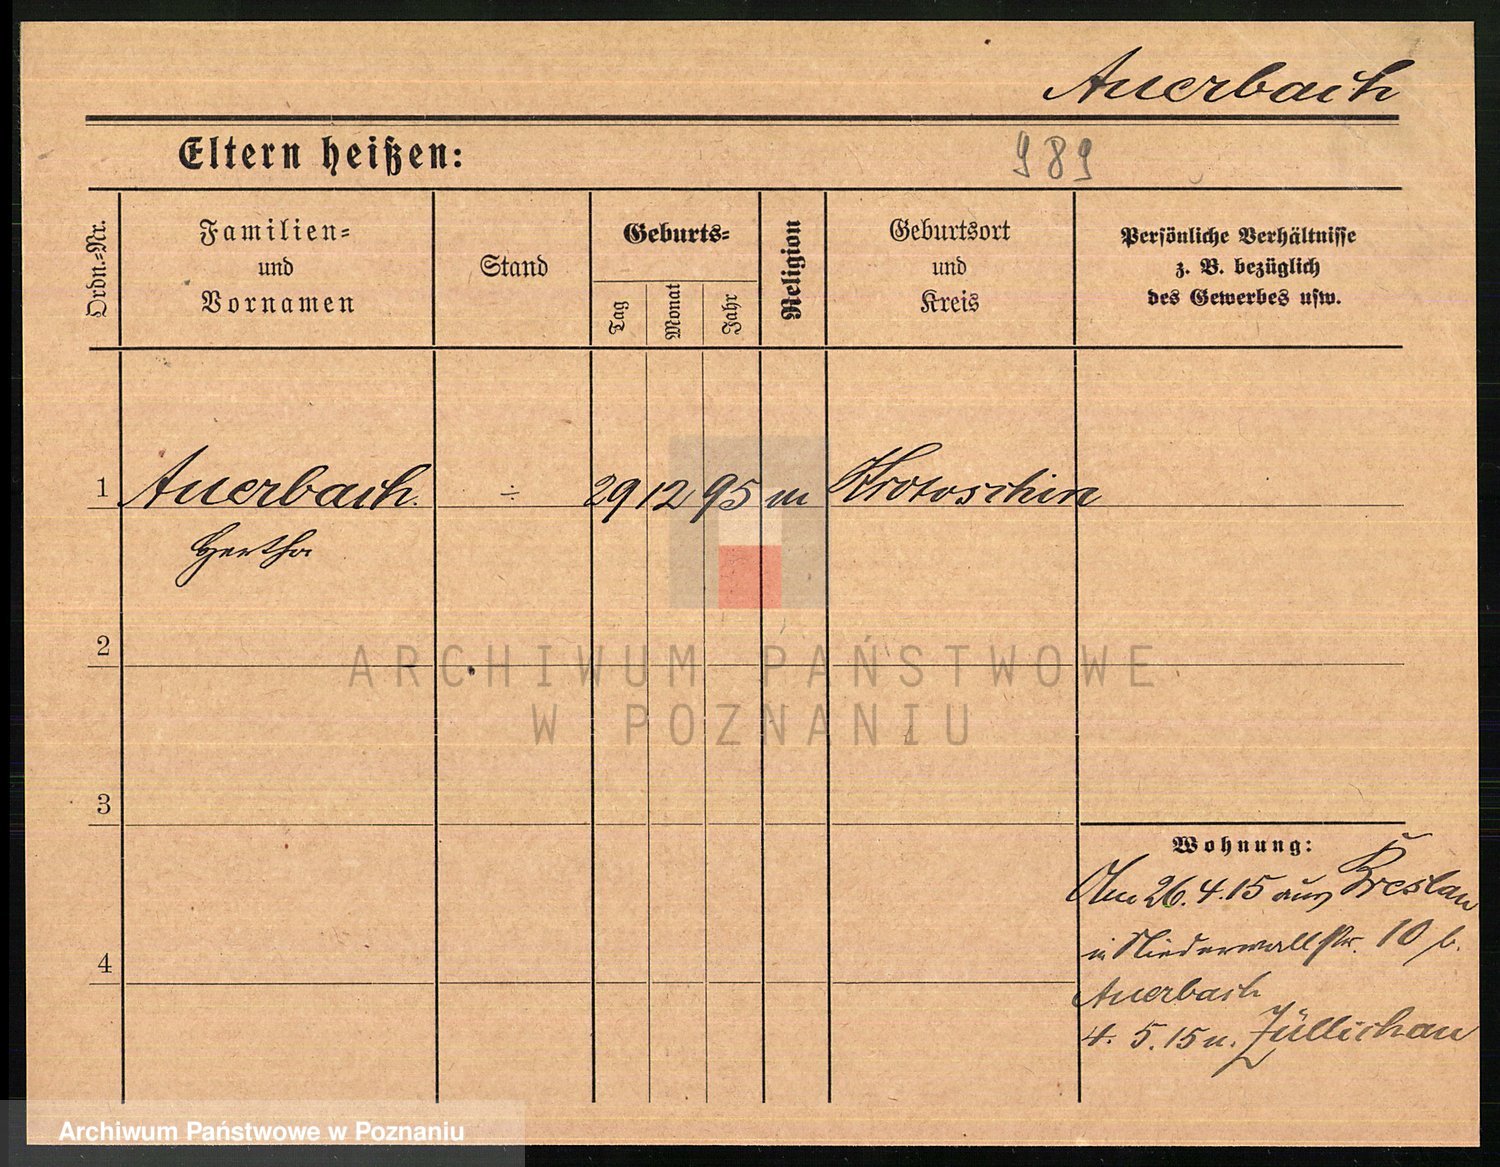 Auerbach
Eltern heißen:
989
Ordn.-Nr.
Familien-
und
Vornamen
Stand
Geburts-
Tag
Monat
Jahr
Religion
Geburtsort
und
Kreis
Persönliche Verhältnisse
z. B. bezüglich
des Gewerbes usw.
1 Auerbach ÷ 29 12 95 m Krotoschin
Hertha
2
ARCHIWUM PAŃSTWOWE
W POZNANIU
3
Wohnung:
Am 26.4.15 aus Breslau
in Niederwallstr. 10 b.
4
Auerbach
4. 5. 15 n. Züllichau
Archiwum Państwowe w Poznaniu